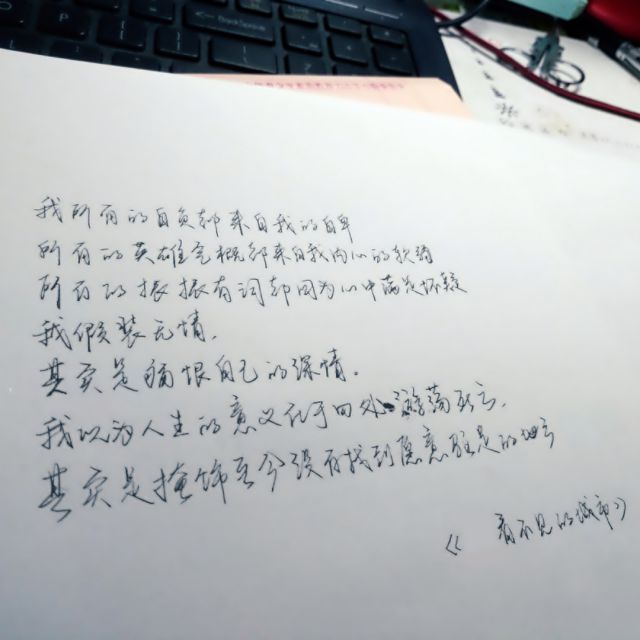 我所有的自负都来自我的自卑
所有的英雄气概都来自我内心的软弱
所有的振振有词都因为心中满是怀疑
我假装无情,
其实是痛恨自己的深情。
我以为人生的意义在于四处游荡流亡,
其实是掩饰至今没有找到愿意驻足的地方
《看不见的城市》